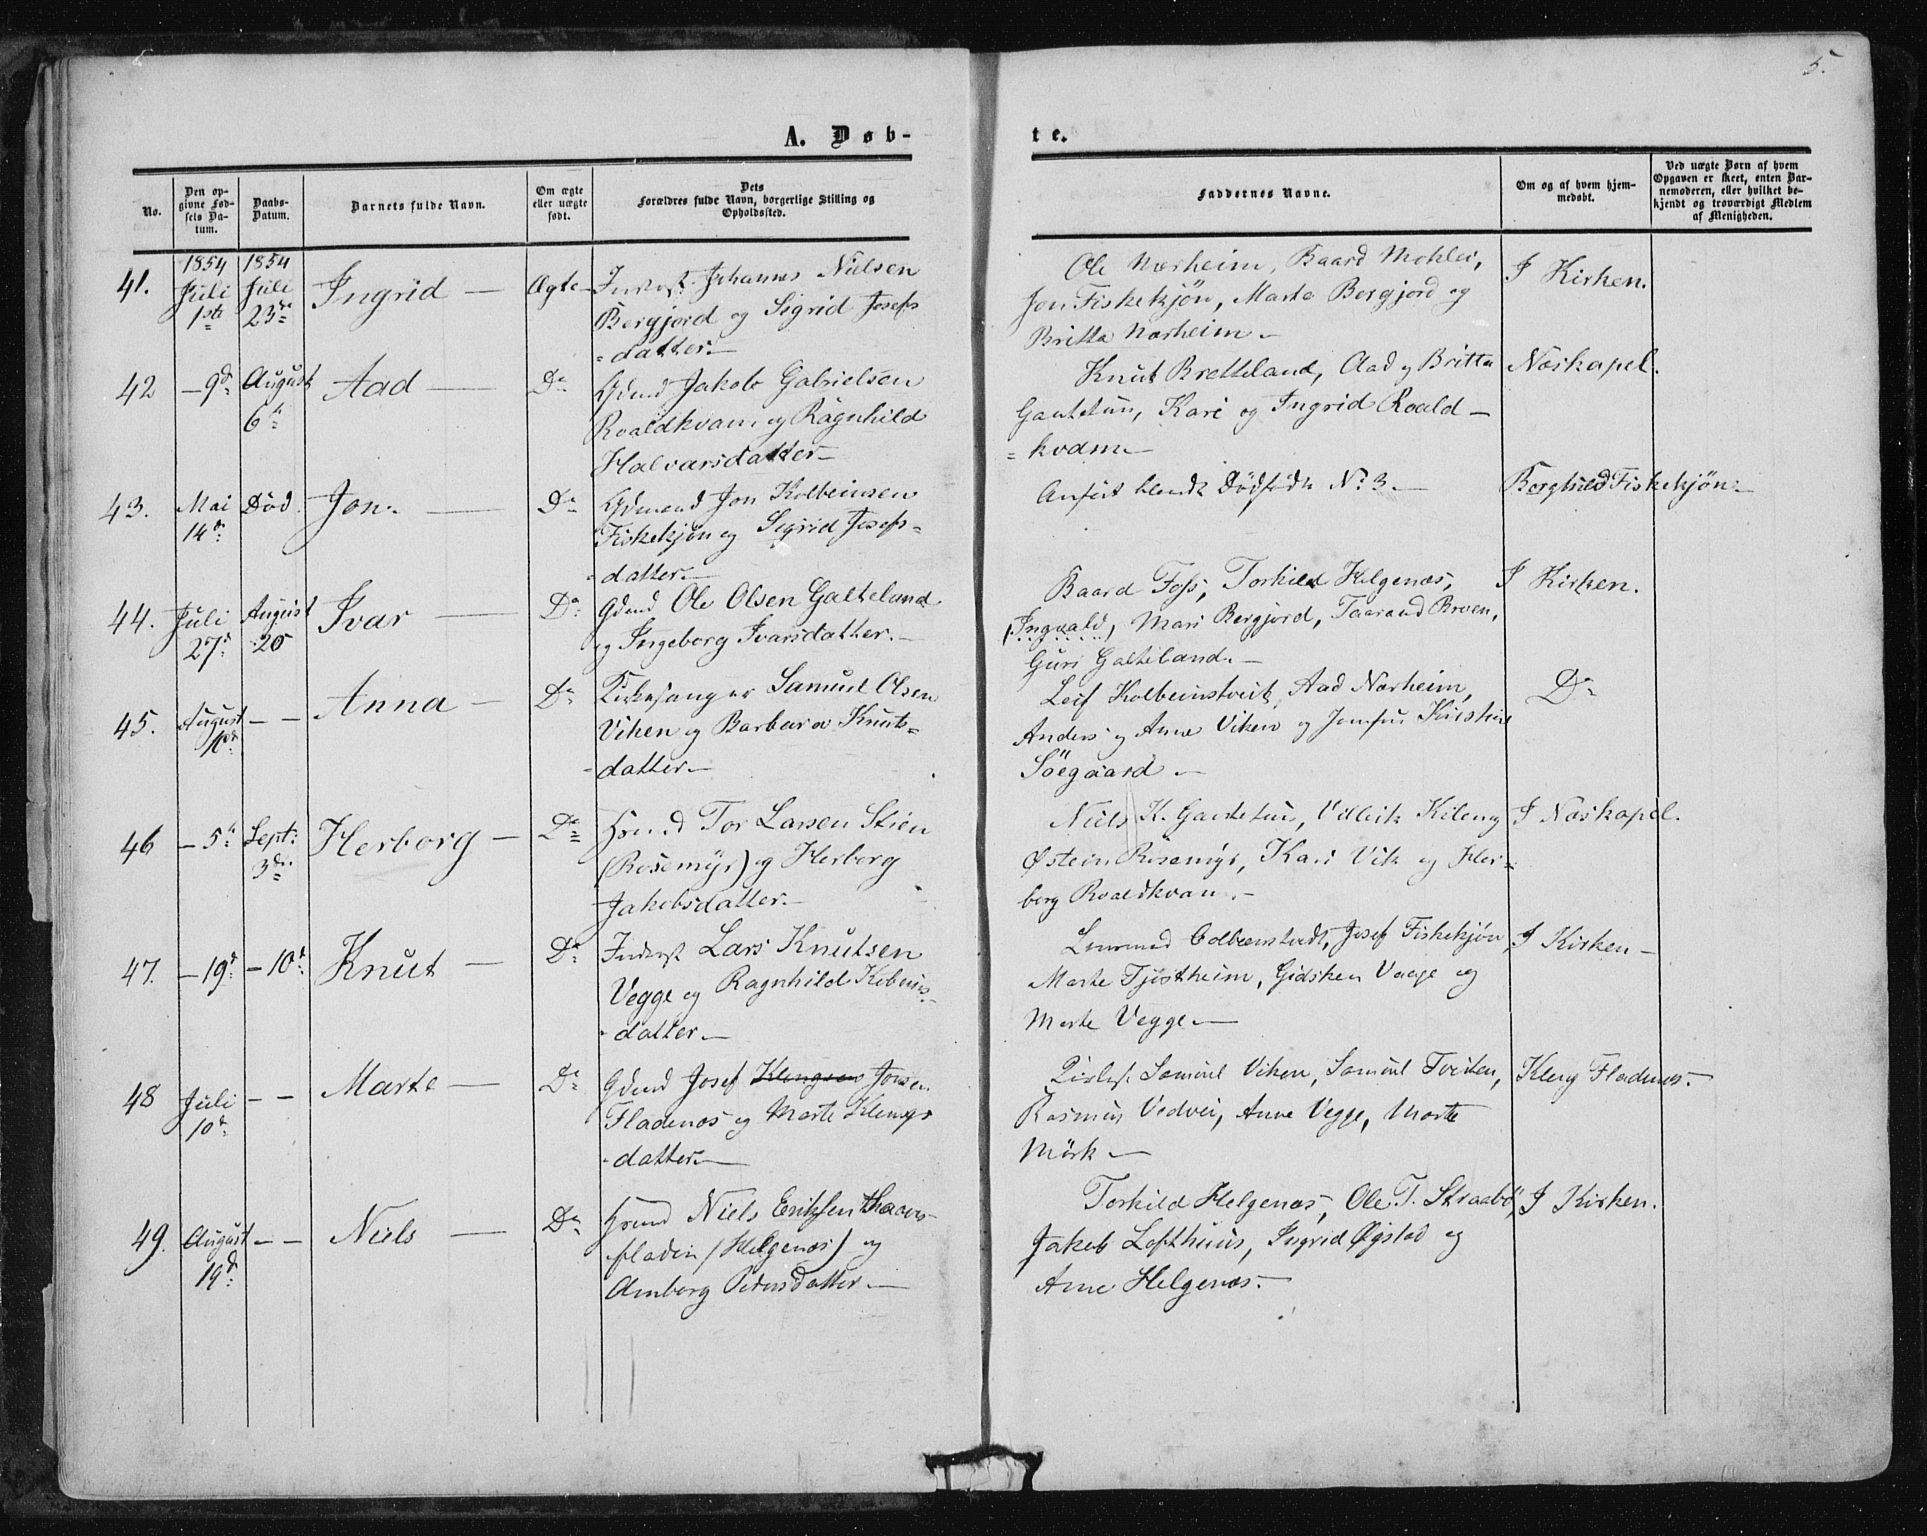 5.
A. Døb-
te.
No.
Den op-
givne Fød-
sels Da-
tum.
Daabs-
Datum.
Barnets fulde Navn.
Om ægte
eller uægte
født.
Dets
Forældres fulde Navn, borgerlige Stilling og
Opholdssted.
Faddernes Navne.
Om og af hvem hjem-
medøbt.
Ved uægte Børn af hvem
Opgaven er skeet, enten Bar-
nemoderen, eller hvilket be-
kjendt og troværdigt Medlem
af Menigheden.
41.
1854
Juli
1ste
1854
Juli
23de
Ingrid —
Ægte —
Inderst Johannes Nielsen
Bergjord og Sigrid Josefs
=datter.—
Ole Nærheim, Baard Mohlei,
Jon Fiskekjøn, Marta Bergjord og
Britta Nærheim —
I Kirken.
42
— 9d.
August
6te
Aad —
Do
Gdmd Jakob Gabrielsen
Roaldkvam og Ragnhild
Halvarsdatter—
Knut Bratteland, Aad og Britta
Gautetun, Kari og Ingrid Roald—
=kvam.—
Næskapel.
43.
Mai
14de
Død.
Jon. —
Do
Gdmand Jon Kolbeinsen
Fiskekjøn og Sigrid Josefs=
=datter.—
Anført blandt Dødfødte No 3.—
Borghild Fiskekjøn.—
44.
Juli
27de
August
20
Ivar —
Do
Gdmd Ole Olsen Galteland
og Ingeborg Ivarsdatter.—
Baard Foss, Torkild Helgenæs,
Ingvald, Mari Bergjord, Taarand Broen,
Guri Galteland.—
I Kirken.
45.
August
— —
Anna —
Do
Kirkesanger Samuel Olsen
Viken og Barbara Knuts=
=datter.—
Leif Kolbeinstveit, Aad Nærheim,
Anders og Anne Viken og Jomfru Kristine
Søegaard.—
Do
46
— 5te
Sept:
3die
Herborg —
Do
Hsmd Tor Larsen Stien
(Rosemyr) og Herborg
Jakobsdatter.—
Niels K. Gautetun, Kileng
Østein Rosemyr, Kari Vik og Her=
borg Roaldkvam.—
I Næskapel.
47.
— 19d.
— 10d.
Knut —
Do
Inderst Lars Knutsen
Vegge og Ragnhild
=datter.—
Josef Fiskekjøn,
Marte Tjøstheim, Gidsken Vaage og
Marte Vegge.—
I Kirken —
48
Juli
10de
— —
Marte —
Do
Gdmd Josef Klengsen Jonsen
Fladenæs og Marte Klengs
=datter.—
Samuel Viken, Samuel Tveiten,
Rasmus Vedvei, Anne Vegge, Marte
Mørk —
Kleng Fladenæs.
49.
August
19d.
— —
Niels —
Do
Hsmd Niels Eriksen
fladen (Helgenæs) og
Amborg Pedersdatter.—
Torkild Helgenæs, Ole T. Straabø,
Jakob Lofthuus, Ingrid Øgstad og
Anne Helgenæs.—
I Kirken.